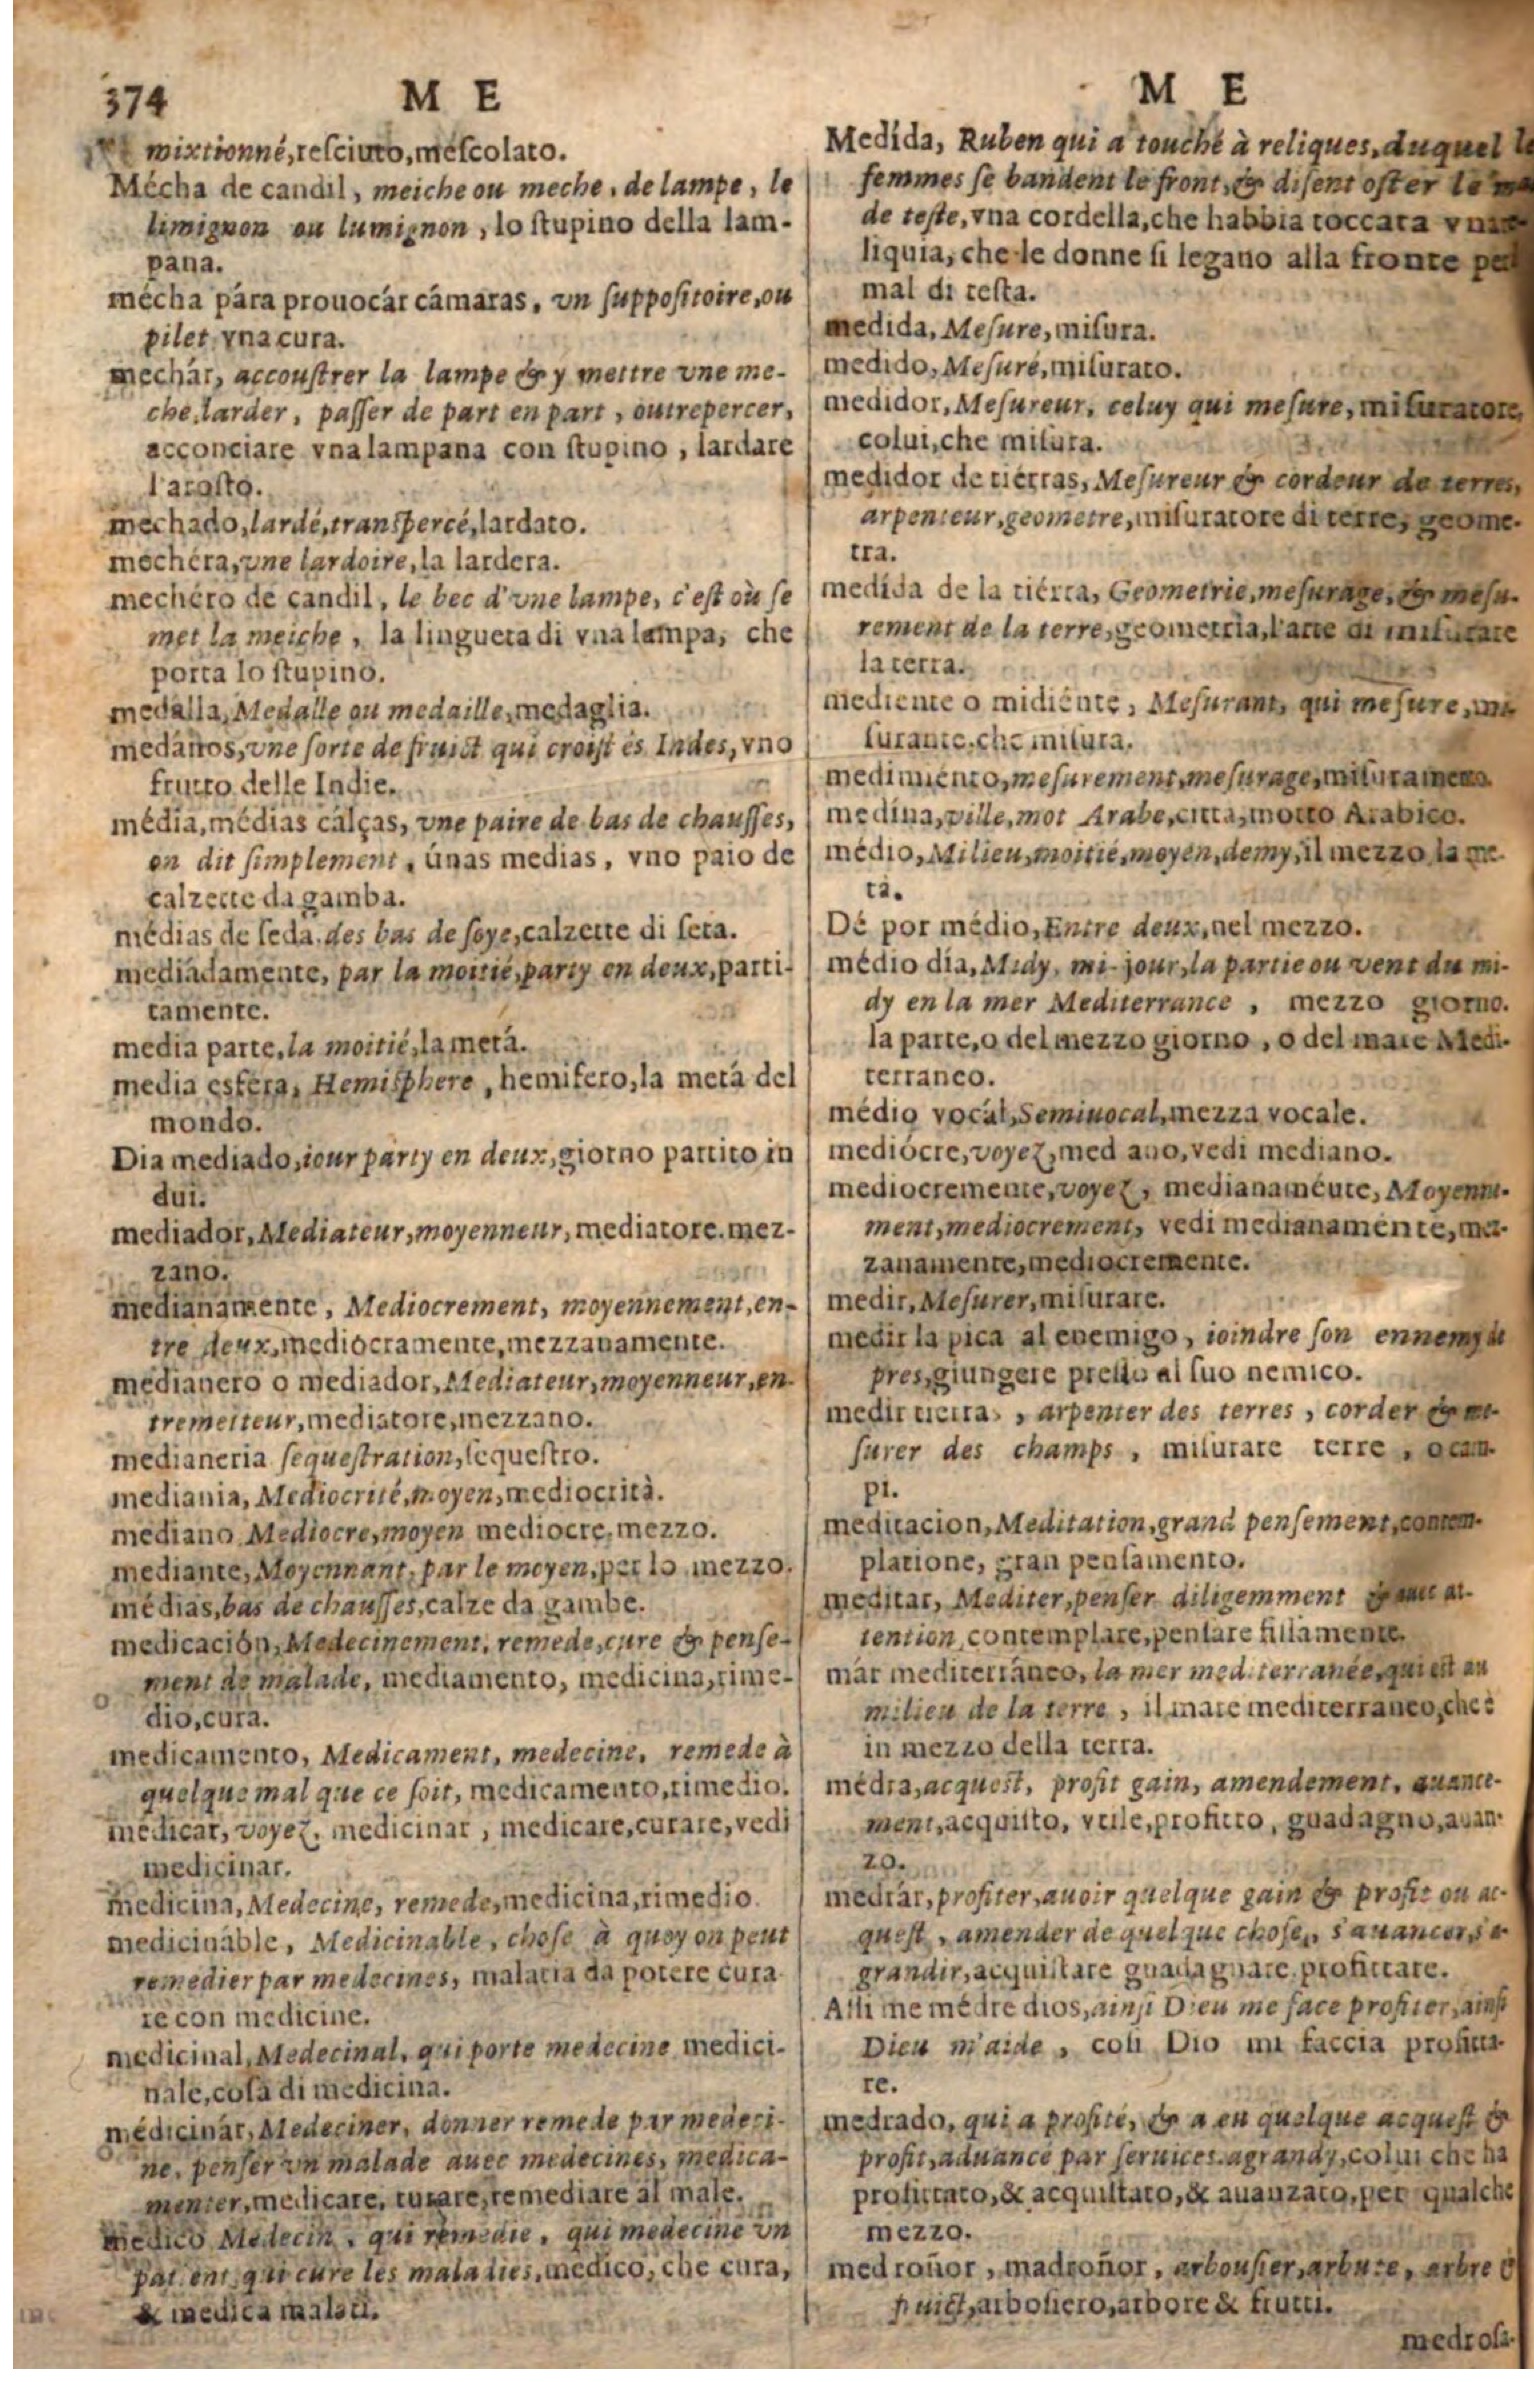 374
M E
mixtionné, resciuto, mescolato.
Mécha de candil, meiche ou meche, de lampe, le
limignon ou lumignon, lo ſtupino della lam-
pana.
mécha pára prouocár cámaras, vn ſuppoſitoire, ou
pilet vna cura.
mechár, accouſtrer la lampe & y mettre vne me-
che, larder, paſſer de part en part, outrepercer,
acconciare vna lampana con ſtupino, lardare
l'arosto.
mechado, lardé, tranſpercé, lardato.
mechéra, vne lardoire, la lardera.
mechéro de candil, le bec d'vne lampe, c'eſt où ſe
met la meiche, la lingueta di vna lampa, che
porta lo ſtupino.
medalla, Medalle ou medaille, medaglia.
medaños, vne ſorte de fruict qui croiſt és Indes, vno
frutto delle Indie.
média, médias cálças, vne paire de bas de chauſſes,
on dit ſimplement, únas medias, vno paio de
calzette da gamba.
médias de ſeda, des bas de ſoye, calzette di ſeta.
mediádamente, par la moitié, party en deux, parti-
tamente.
media parte, la moitié, la metá.
media esféra, Hemiſphere, hemiſero, la metá del
mondo.
Dia mediado, iour party en deux, giorno partito in
dui.
mediador, Mediateur, moyenneur, mediatore. mez-
zano.
medianamente, Mediocrement, moyennement, en-
tre deux, mediocramente, mezzanamente.
medianero o mediador, Mediateur, moyenneur, en-
tremetteur, mediatore, mezzano.
medianeria ſequeſtration, ſequeſtro.
mediania, Mediocrité, moyen, mediocrità.
mediano Mediocre, moyen mediocre, mezzo.
mediante, Moyennant, par le moyen, per lo mezzo.
médias, bas de chauſſes, calze da gambe.
medicación, Medecinement, remede, cure & penſe-
ment de malade, mediamento, medicina, rime-
dio, cura.
medicamento, Medicament, medecine, remede à
quelque mal que ce ſoit, medicamento, rimedio.
medicar, voyez, medicinar, medicare, curare, vedi
medicinar.
medicina, Medecine, remede, medicina, rimedio.
medicinable, Medicinable, choſe à quoy on peut
remedier par medecines, malatia da potere cura
re con medicine.
medicinal, Medecinal, qui porte medecine medici-
nale, coſa di medicina.
médicinár, Medeciner, donner remede par medeci-
ne, penſer vn malade auec medecines, medica-
menter, medicare, curare, remediare al male.
medico Medecin, qui remedie, qui medecine vn
patient, qui cure les maladies, medico, che cura,
& medica malati.
M E
Medída, Ruben qui a touché à reliques, duquel le
femmes ſe bandent le front, & diſent oſter le
de teſte, vna cordella, che habbia toccata vna
liquia, che le donne ſi legano alla fronte per
mal di teſta.
medida, Meſure, miſura.
medido, Meſuré, miſurato.
medidor, Meſureur, celuy qui meſure, miſuratore,
colui, che miſura.
medidor de tiérras, Meſureur & cordeur de terres,
arpenteur, geometre, miſuratore di terre, geome-
tra.
medída de la tiérra, Geometrie, meſurage, & meſu-
rement de la terre, geometria, l'arte di miſurare
la terra.
mediente o midiénte, Meſurant, qui meſure, mi-
ſurante, che miſura.
medimiénto, meſurement, meſurage, miſuramento.
medina, ville, mot Arabe, citta, motto Arabico.
médio, Milieu, moitié, moyen, demy, il mezzo, la me-
tà.
Dé por médio, Entre deux, nel mezzo.
médio día, Midy, mi-jour, la partie ou vent du mi-
dy en la mer Mediterrance, mezzo giorno.
la parte, o del mezzo giorno, o del mare Medi-
terraneo.
médio vocál, Semiuocal, mezza vocale.
mediócre, voyez, med ano, vedi mediano.
mediocremente, voyez, medianaménte, Moyenne-
ment, mediocrement, vedi medianaménte, mez-
zanamente, mediocremente.
medir, Meſurer, miſurare.
medir la pica al enemigo, ioindre ſon ennemy de
pres, giungere preſſo al ſuo nemico.
medir tierras, arpenter des terres, corder & me-
ſurer des champs, miſurare terre, o cam-
pi.
meditacion, Meditation, grand penſement, contem-
platione, gran penſamento.
meditar, Mediter, penſer diligemment & auec at-
tention, contemplare, penſare fiſſamente.
már mediterráneo, la mer mediterranée, qui eſt au
milieu de la terre, il mare mediterraneo, che è
in mezzo della terra.
médra, acqueſt, profit gain, amendement, auance-
ment, acquiſto, vtile, profitto, guadagno, auan-
zo.
medrár, profiter, auoir quelque gain & profit ou ac-
queſt, amender de quelque choſe, s'auancer, s'a-
grandir, acquiſtare guadagnare, profittare.
Aſſi me médre dios, ainſi Dieu me face profiter, ainſi
Dieu m'aide, coſi Dio mi faccia profitta-
re.
medrado, qui a profité, & a eu quelque acqueſt &
profit, aduancé par ſeruices, agrandy, colui che ha
profittato, & acquiſtato, & auanzato, per qualche
mezzo.
medroñor, madroñor, arbouſier, arbute, arbre &
fruict, arboſiero, arbore & frutti.
medroſa-